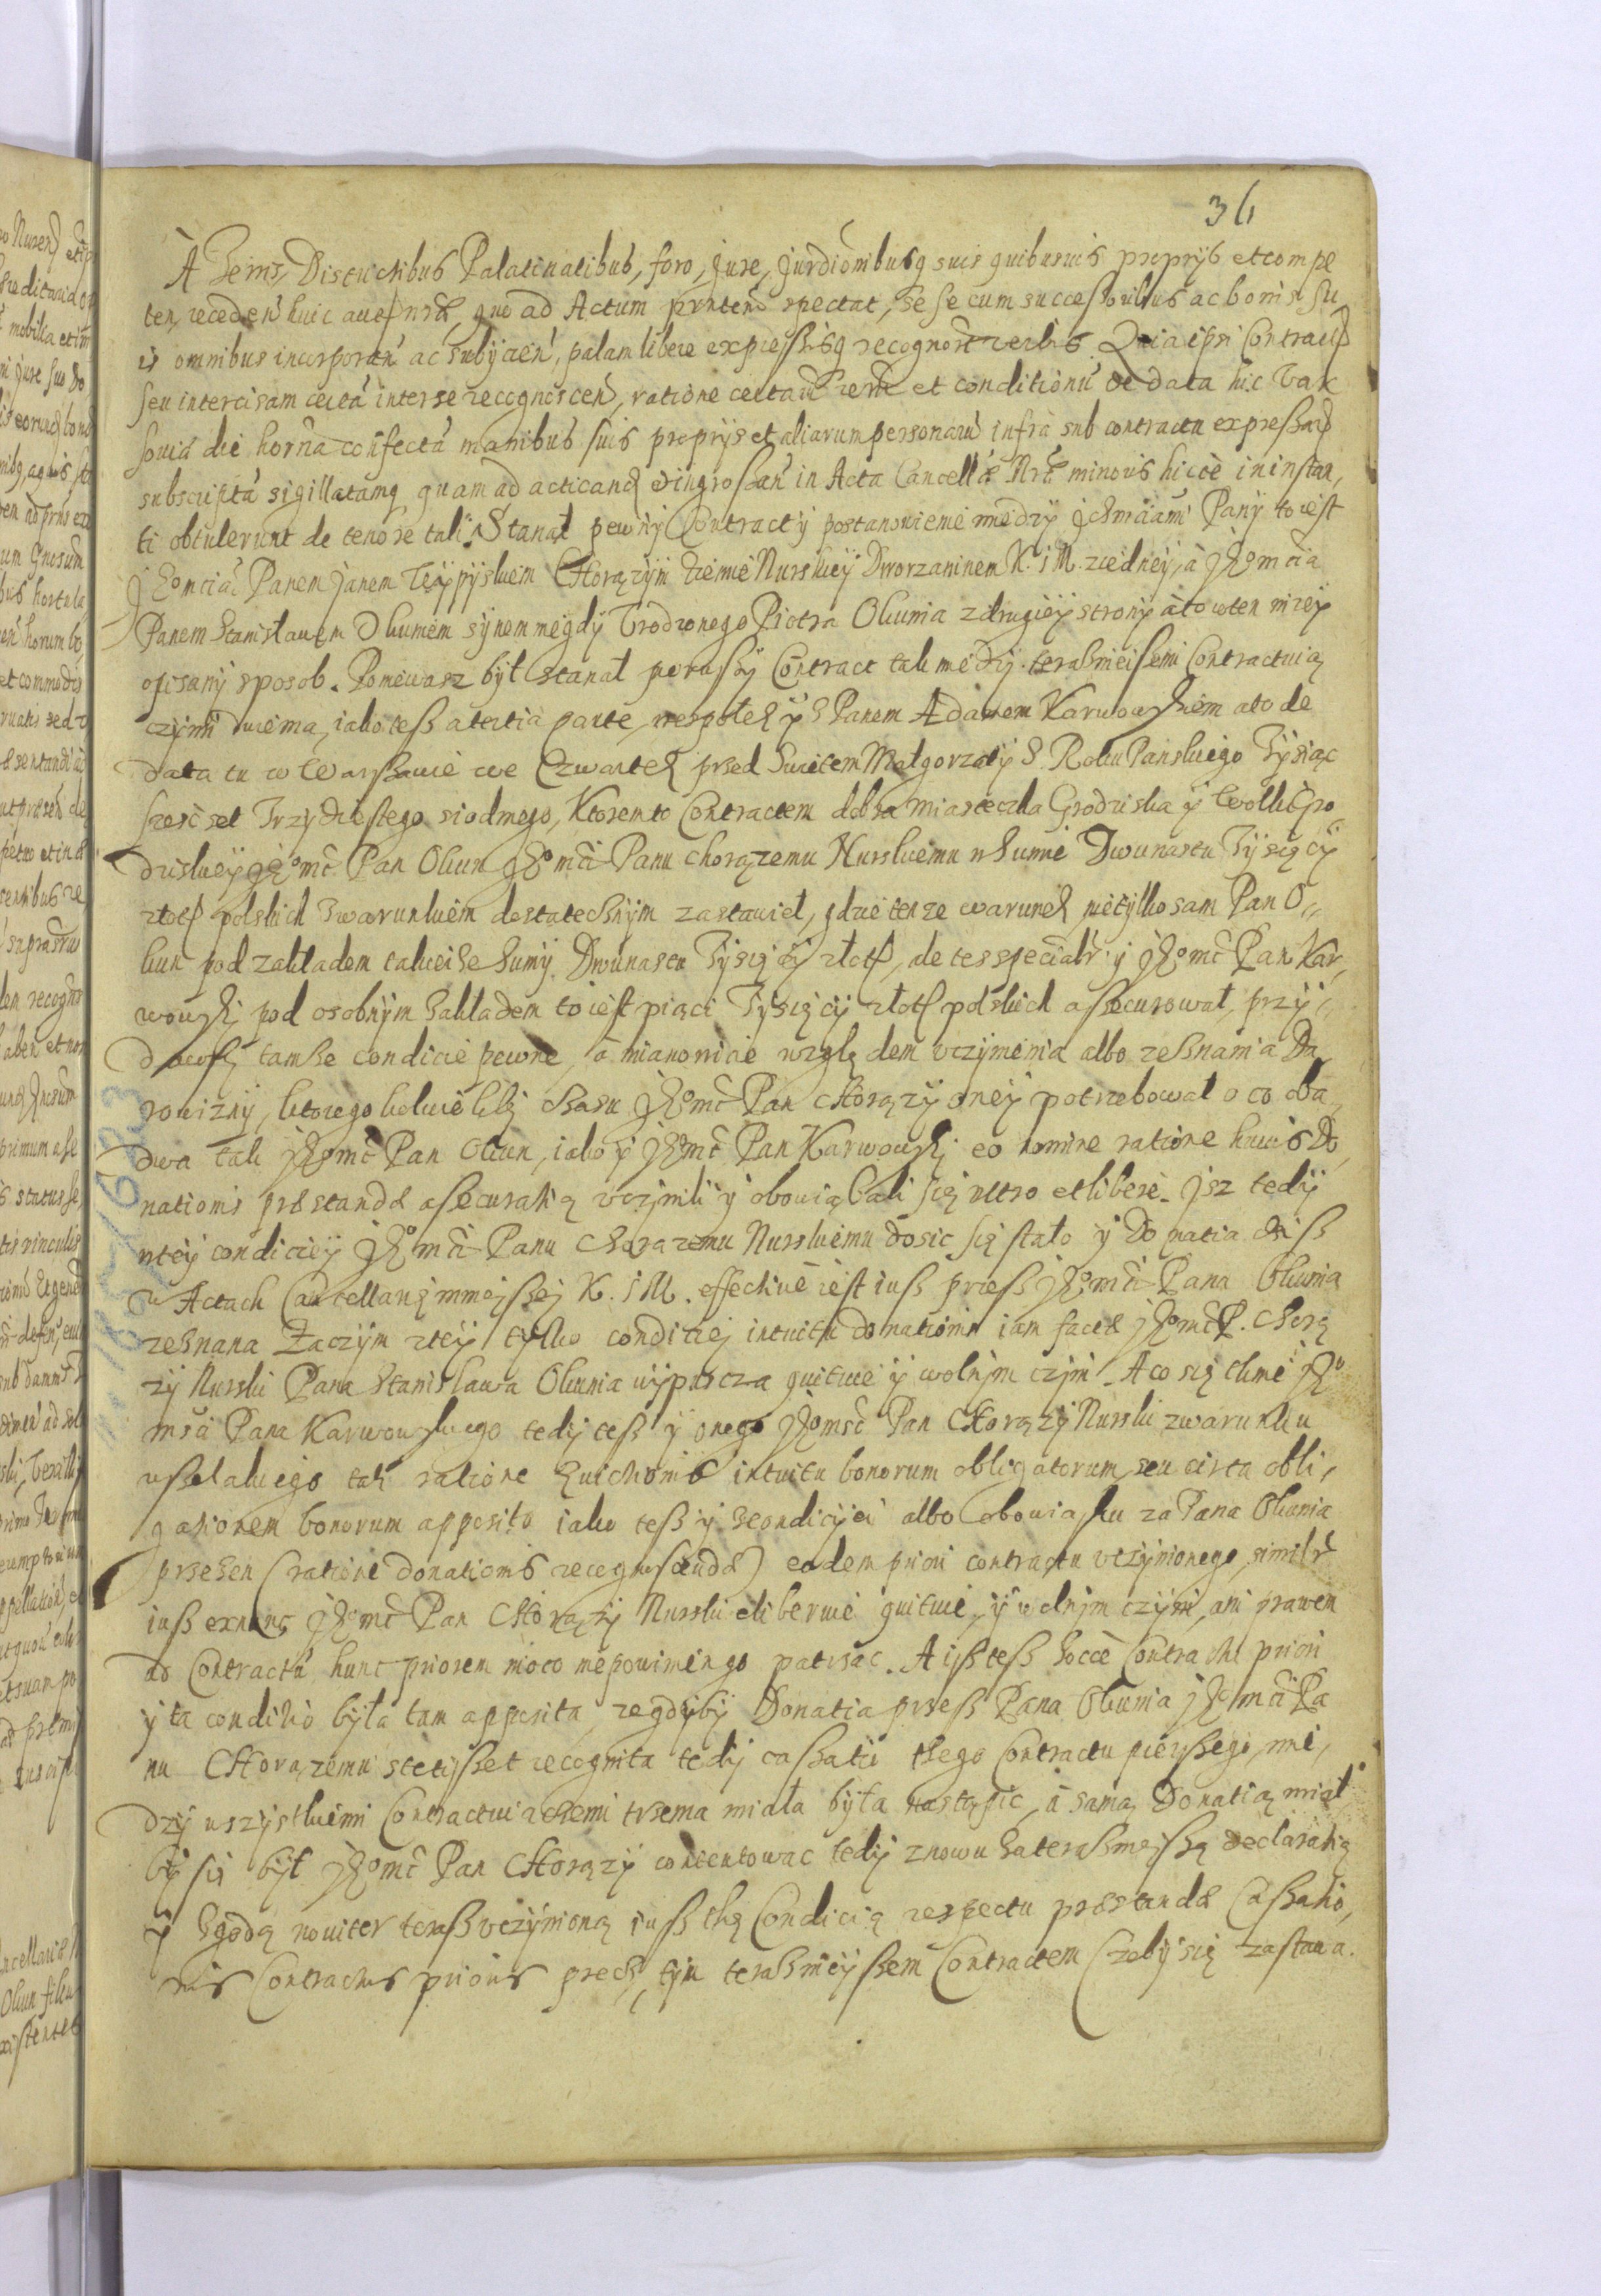 36
A Terris, Districtibus Palatinatibus, foro, Jure, Jurdictionibusq suis quibusuis proprijs et compe
ten, receden huic vero quo ad Actum prntem spectat, se se cum successoribus ac bonis su
is omnibus incorporan ac subijcien, palam libere expressisq recognovit verbis. Quia ipsi Contractū
seu intercisam certā inter se recognoscen, ratione certarū rerū et conditionū de data hic Var
souiā die hornā confectā manibus suis proprijs et aliarum personarū infrà sub contractu expressarū
subscriptā sigillatamq quam ad acticand et ingrossan in Acta Cancellæ Nræ minoris hicce in instan,
ti obtulerunt de tenore tali. Stanął pewny Contract y postanowienie miedzy Jchmciami Pany to iest
Je Eomcią Panem Janem Chorązym Ziemie Nurskiey Dworzaninem K. J M. z iedney, à JEomcią
Panem Stanisławem Okuniem synem niegdy Vrodzonego Piotra Okunia z drugiey strony à to w ten nizey
opisany sposob. Poniewasz był stanął pierwszy Contract tak miedzy terasnieiszemi Contractuią
czymi dwiema, iako tesz a tertia parte, wespołek y s Panem Adamem Karwowskiem a to de
data tu w Warszawie we Czwartek przed Swietem Małgorzaty S. Roku Panskiego Tysiąc
szesc set Trzydziestego siodmego, Ktorem to Contractem dobra miasteczka Grodziska y Wolki Gro,
dziskiey JEomc Pan Okun JEomci Panu Chorązemu Nurskiemu w summie Dwunastu Tysięcy
złoth polskich z warunkiem dostatecznym zastawieł, gdzie tenze warunek nie tylko sam Pan O,,
kun pod zakładem takieisze sumy Dwunastu Tysięcy złoth, ale tesz specialr y JEomc Pan Kar,
wowsky pod osobnym zakładem to iest piąci Tysięcy złoth polskich assecurował, przy
dawszy tamsze condicie pewne, à mianowicie względem vczynienia albo zeznania Da,
rowizny, ktorego kolwiekby czasu JEomc Pan Chorązy oney potrzebował o co oba,
dwa tak JEomc Pan Okun, iako y JEomc Pan Karwowsky eo nomine ratione huius Do,
nationis præstandæ assecuratią vczynili y obowiązali się vltro et libere. Jsz tedy
w tey condiciey JEomci Panu Chorązemu Nurskiemu dosic się stało y Donatia dzisz
w Actach Cancellaryi mnieyszey K. J M. effective iest iusz przesz JEomci Pana Okunia
zeznana Zaczym z tey tylko condiciey intuitu donationis iam factæ JEomc P. Chorą
zy Nurski Pana Stanisława Okunia wypuscza quituie y wolnym czyni. A co się tknie JEo
msci Pana Karwowskiego tedy tesz y onego JEomsc Pan Chorązy Nurski z warunku
wszelakiego tak ratione Euictionis intuitu bonorum obligatorum seu circa obli,
gationem bonorum apposito iako tesz y s condiciyei albo obowiąsku za Pana Okunia
przezen (ratione donationis recognoscendæ) eodem priori contractu vczynionego, similr
iusz exnunc JEomc Pan Chorązy Nurski eliberuie quituie, y wolnym czyni, ani prawem
ad Contractū hunc priorem nioco nie powinien go patrzac. A isz tesz hocce Contractu priori
y ta conditio była tam apposita, ze gdyby Donatia przesz Pana Okunia JEomci Pa
nu Chorązemu stetisset recognita tedy cassatia thego Contractu pierszego, mie,
dzy wszystkiemi Contractuiączemi trzema miała była nastąpic, à samą Donatią miał
by się był JEomc Pan Chorązy contentowac tedy znowu za terasznieyszą declaratią
y Zgodą noviter terasz vczynioną iusz thą Condicią respectu præstandæ Cassatio,
nis Contractus prioris przed tym terasznieyszem Contractem (zeby się zastawa.